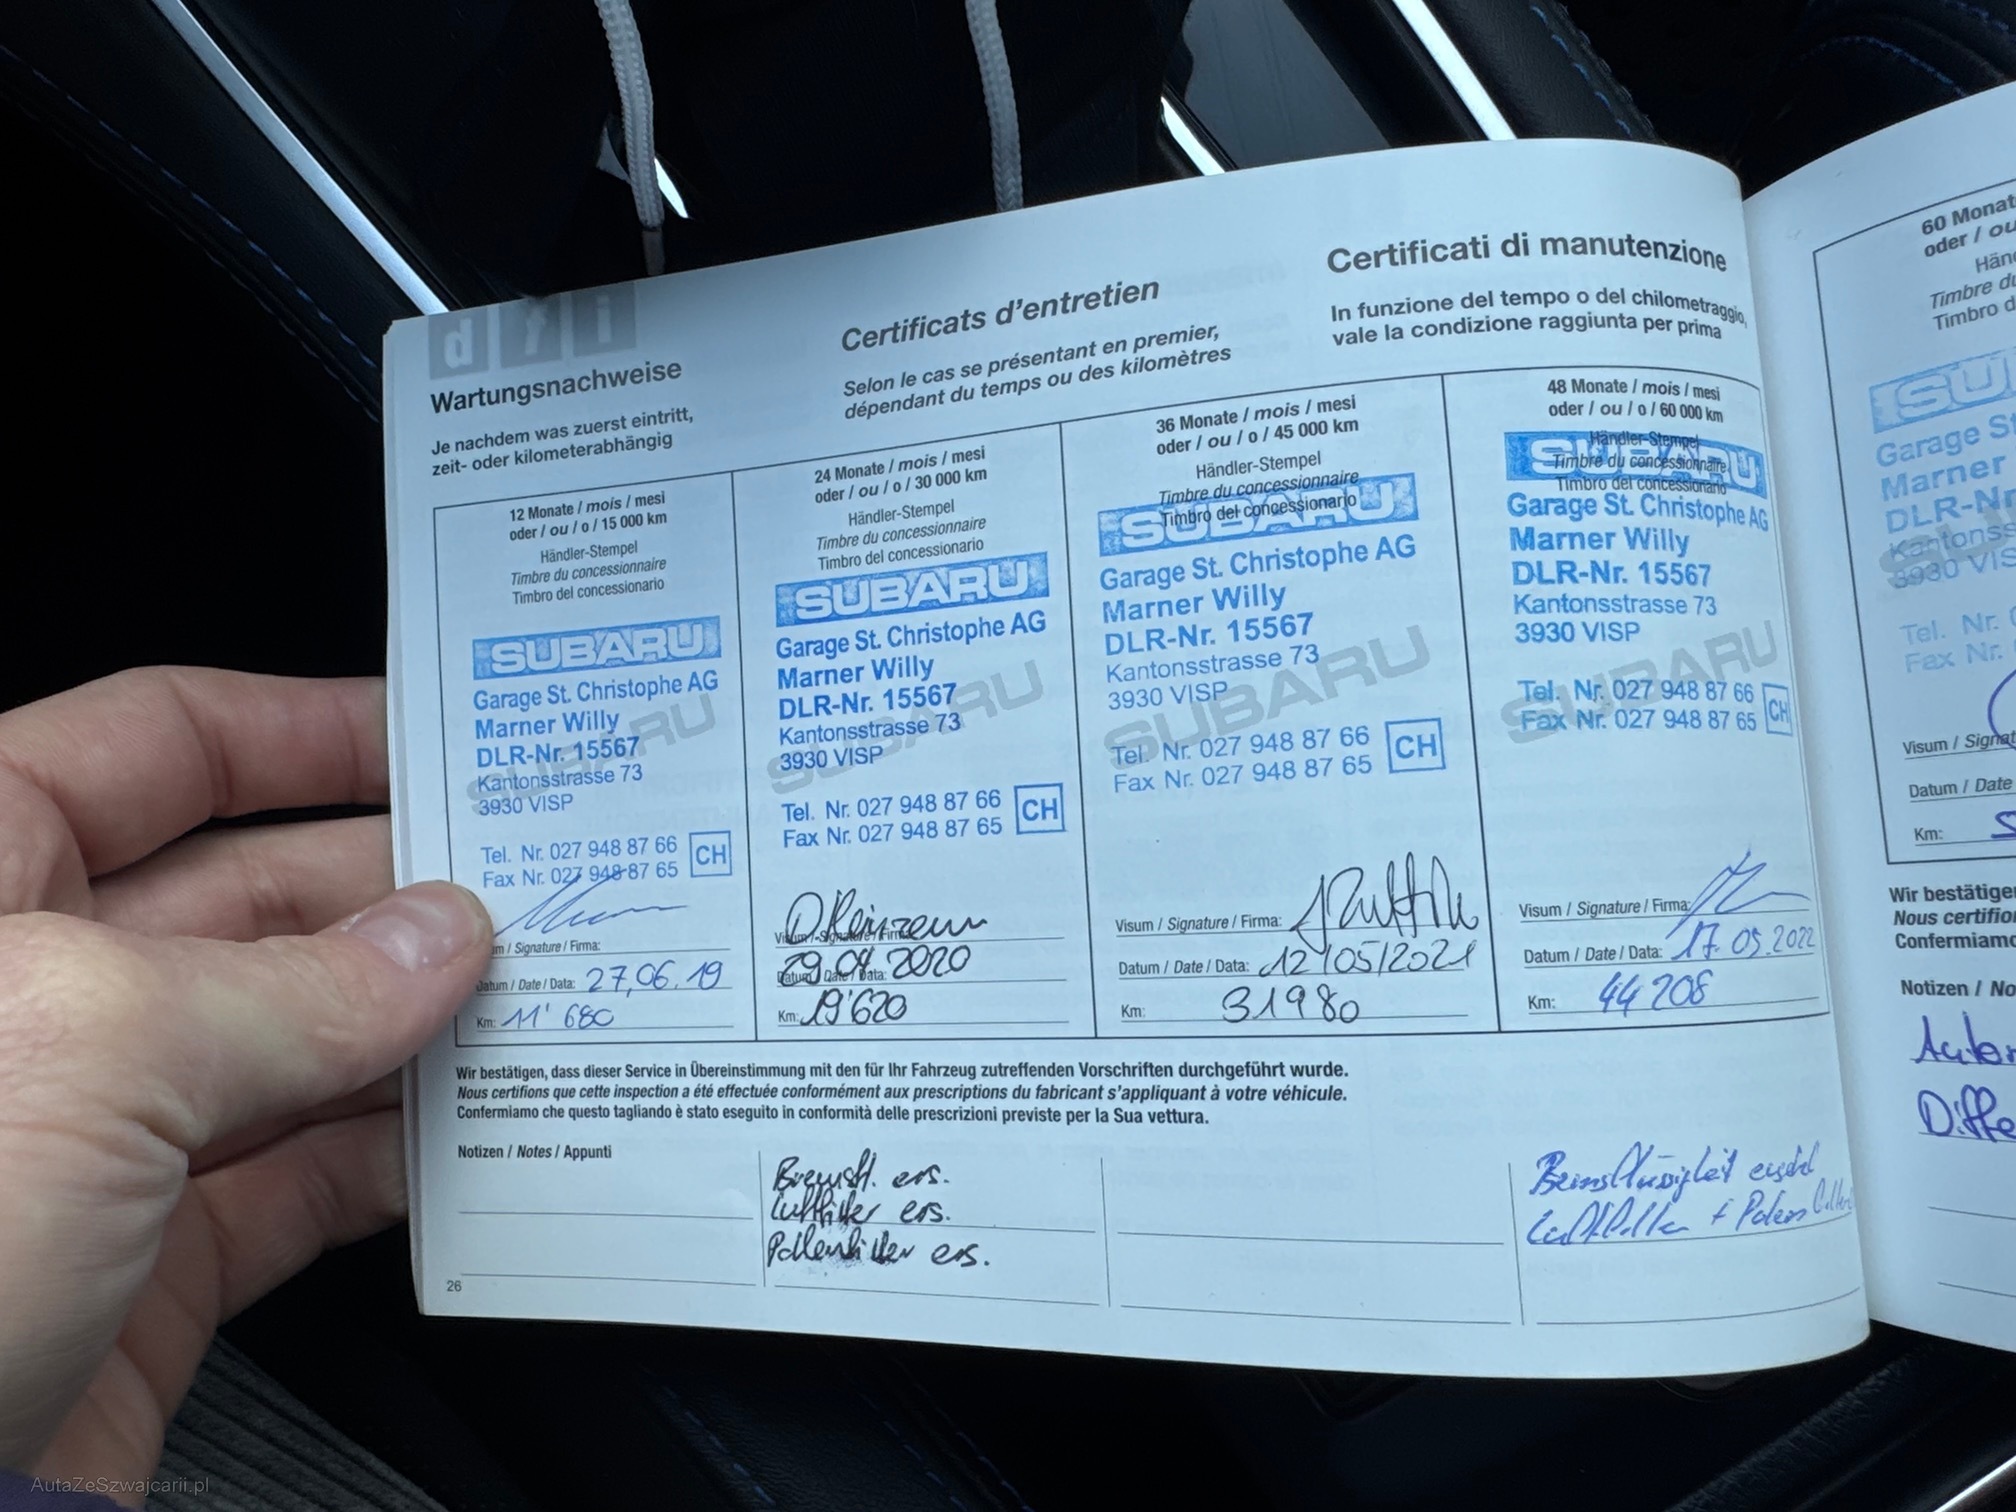 d f i
Wartungsnachweise
Je nachdem was zuerst eintritt,
zeit- oder kilometerabhängig
Certificats d'entretien
Selon le cas se présentant en premier,
dépendant du temps ou des kilomètres
Certificati di manutenzione
In funzione del tempo o del chilometraggio,
vale la condizione raggiunta per prima
12 Monate / mois / mesi
oder / ou / o / 15 000 km
Händler-Stempel
Timbre du concessionnaire
Timbro del concessionario
SUBARU
Garage St. Christophe AG
Marner Willy
DLR-Nr. 15567
Kantonsstrasse 73
3930 VISP
SUBARU
Tel. Nr. 027 948 87 66
Fax Nr. 027 948 87 65
CH
/ Signature / Firma:
Datum / Date / Data: 27,06.19
Km: 11'680
24 Monate / mois / mesi
oder / ou / o / 30 000 km
Händler-Stempel
Timbre du concessionnaire
Timbro del concessionario
SUBARU
Garage St. Christophe AG
Marner Willy
DLR-Nr. 15567
Kantonsstrasse 73
3930 VISP
SUBARU
Tel. Nr. 027 948 87 66
Fax Nr. 027 948 87 65
CH
Visum / Signature / Firma:
Datum / Date / Data: 29.04.2020
Km: 19'620
36 Monate / mois / mesi
oder / ou / o / 45 000 km
Händler-Stempel
Timbre du concessionnaire
Timbro del concessionario
SUBARU
Garage St. Christophe AG
Marner Willy
DLR-Nr. 15567
Kantonsstrasse 73
3930 VISP
SUBARU
Tel. Nr. 027 948 87 66
Fax Nr. 027 948 87 65
CH
Visum / Signature / Firma:
Datum / Date / Data: 12/05/2021
Km: 31980
48 Monate / mois / mesi
oder / ou / o / 60 000 km
Händler-Stempel
Timbre du concessionnaire
Timbro del concessionario
SUBARU
Garage St. Christophe AG
Marner Willy
DLR-Nr. 15567
Kantonsstrasse 73
3930 VISP
SUBARU
Tel. Nr. 027 948 87 66
Fax Nr. 027 948 87 65
CH
Visum / Signature / Firma:
Datum / Date / Data: 17.05.2022
Km: 44208
Wir bestätigen, dass dieser Service in Übereinstimmung mit den für Ihr Fahrzeug zutreffenden Vorschriften durchgeführt wurde.
Nous certifions que cette inspection a été effectuée conformément aux prescriptions du fabricant s'appliquant à votre véhicule.
Confermiamo che questo tagliando è stato eseguito in conformità delle prescrizioni previste per la Sua vettura.
Notizen / Notes / Appunti
Bremsfl. ers.
Luftfilter ers.
Pollenfilter ers.
Bremsflüssigkeit
Luftfilter + Pollen
26
60 Monat
oder / ou
Hän
Timbre du
Timbro d
SU
Garage St
Marner
DLR-N
Kantonss
3930 VIS
Tel. Nr.
Fax Nr.
Visum / Signat
Datum / Date
Km:
Wir bestätigen
Nous certifio
Confermiamo
Notizen / No
Diffe
AutaZeSzwajcarii.pl